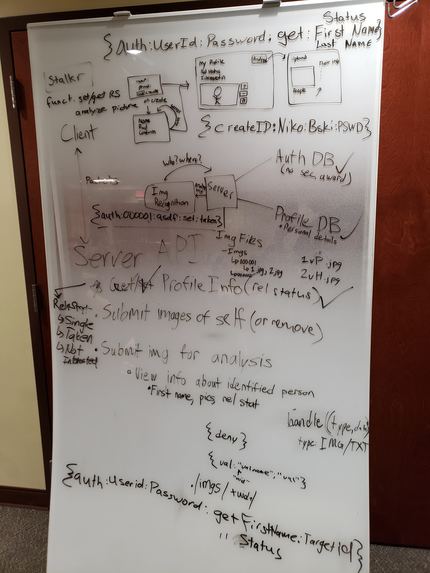 Status
{auth:UserId:Password: get: First Name}
Last Name
Stalkr
My Profile
funct. set/get RS
analyze picture
Client
{createID:Niko:Bski:PSWD}
who? when?
Auth DB
(no sec. award)
Img
Recognition
Server
{auth:000001:asdf:set:taken}
Profile DB
•Personal details
Img Files
-Imgs
↳000001
↳1.jpg, 2.jpg
1vP.jpg
2vH.jpg
Server API
Get/ Profile Info (rel status)
↳Single
↳Taken
↳Not
Interested
• Submit images of self (or remove)
• Submit img for analysis
◦ View info about identified person
• First name, pics, rel stat
handle(type,data)
type: IMG/TXT
{deny}
./imgs/
{auth:Userid:Password: get FirstName:TargetId}
" Status